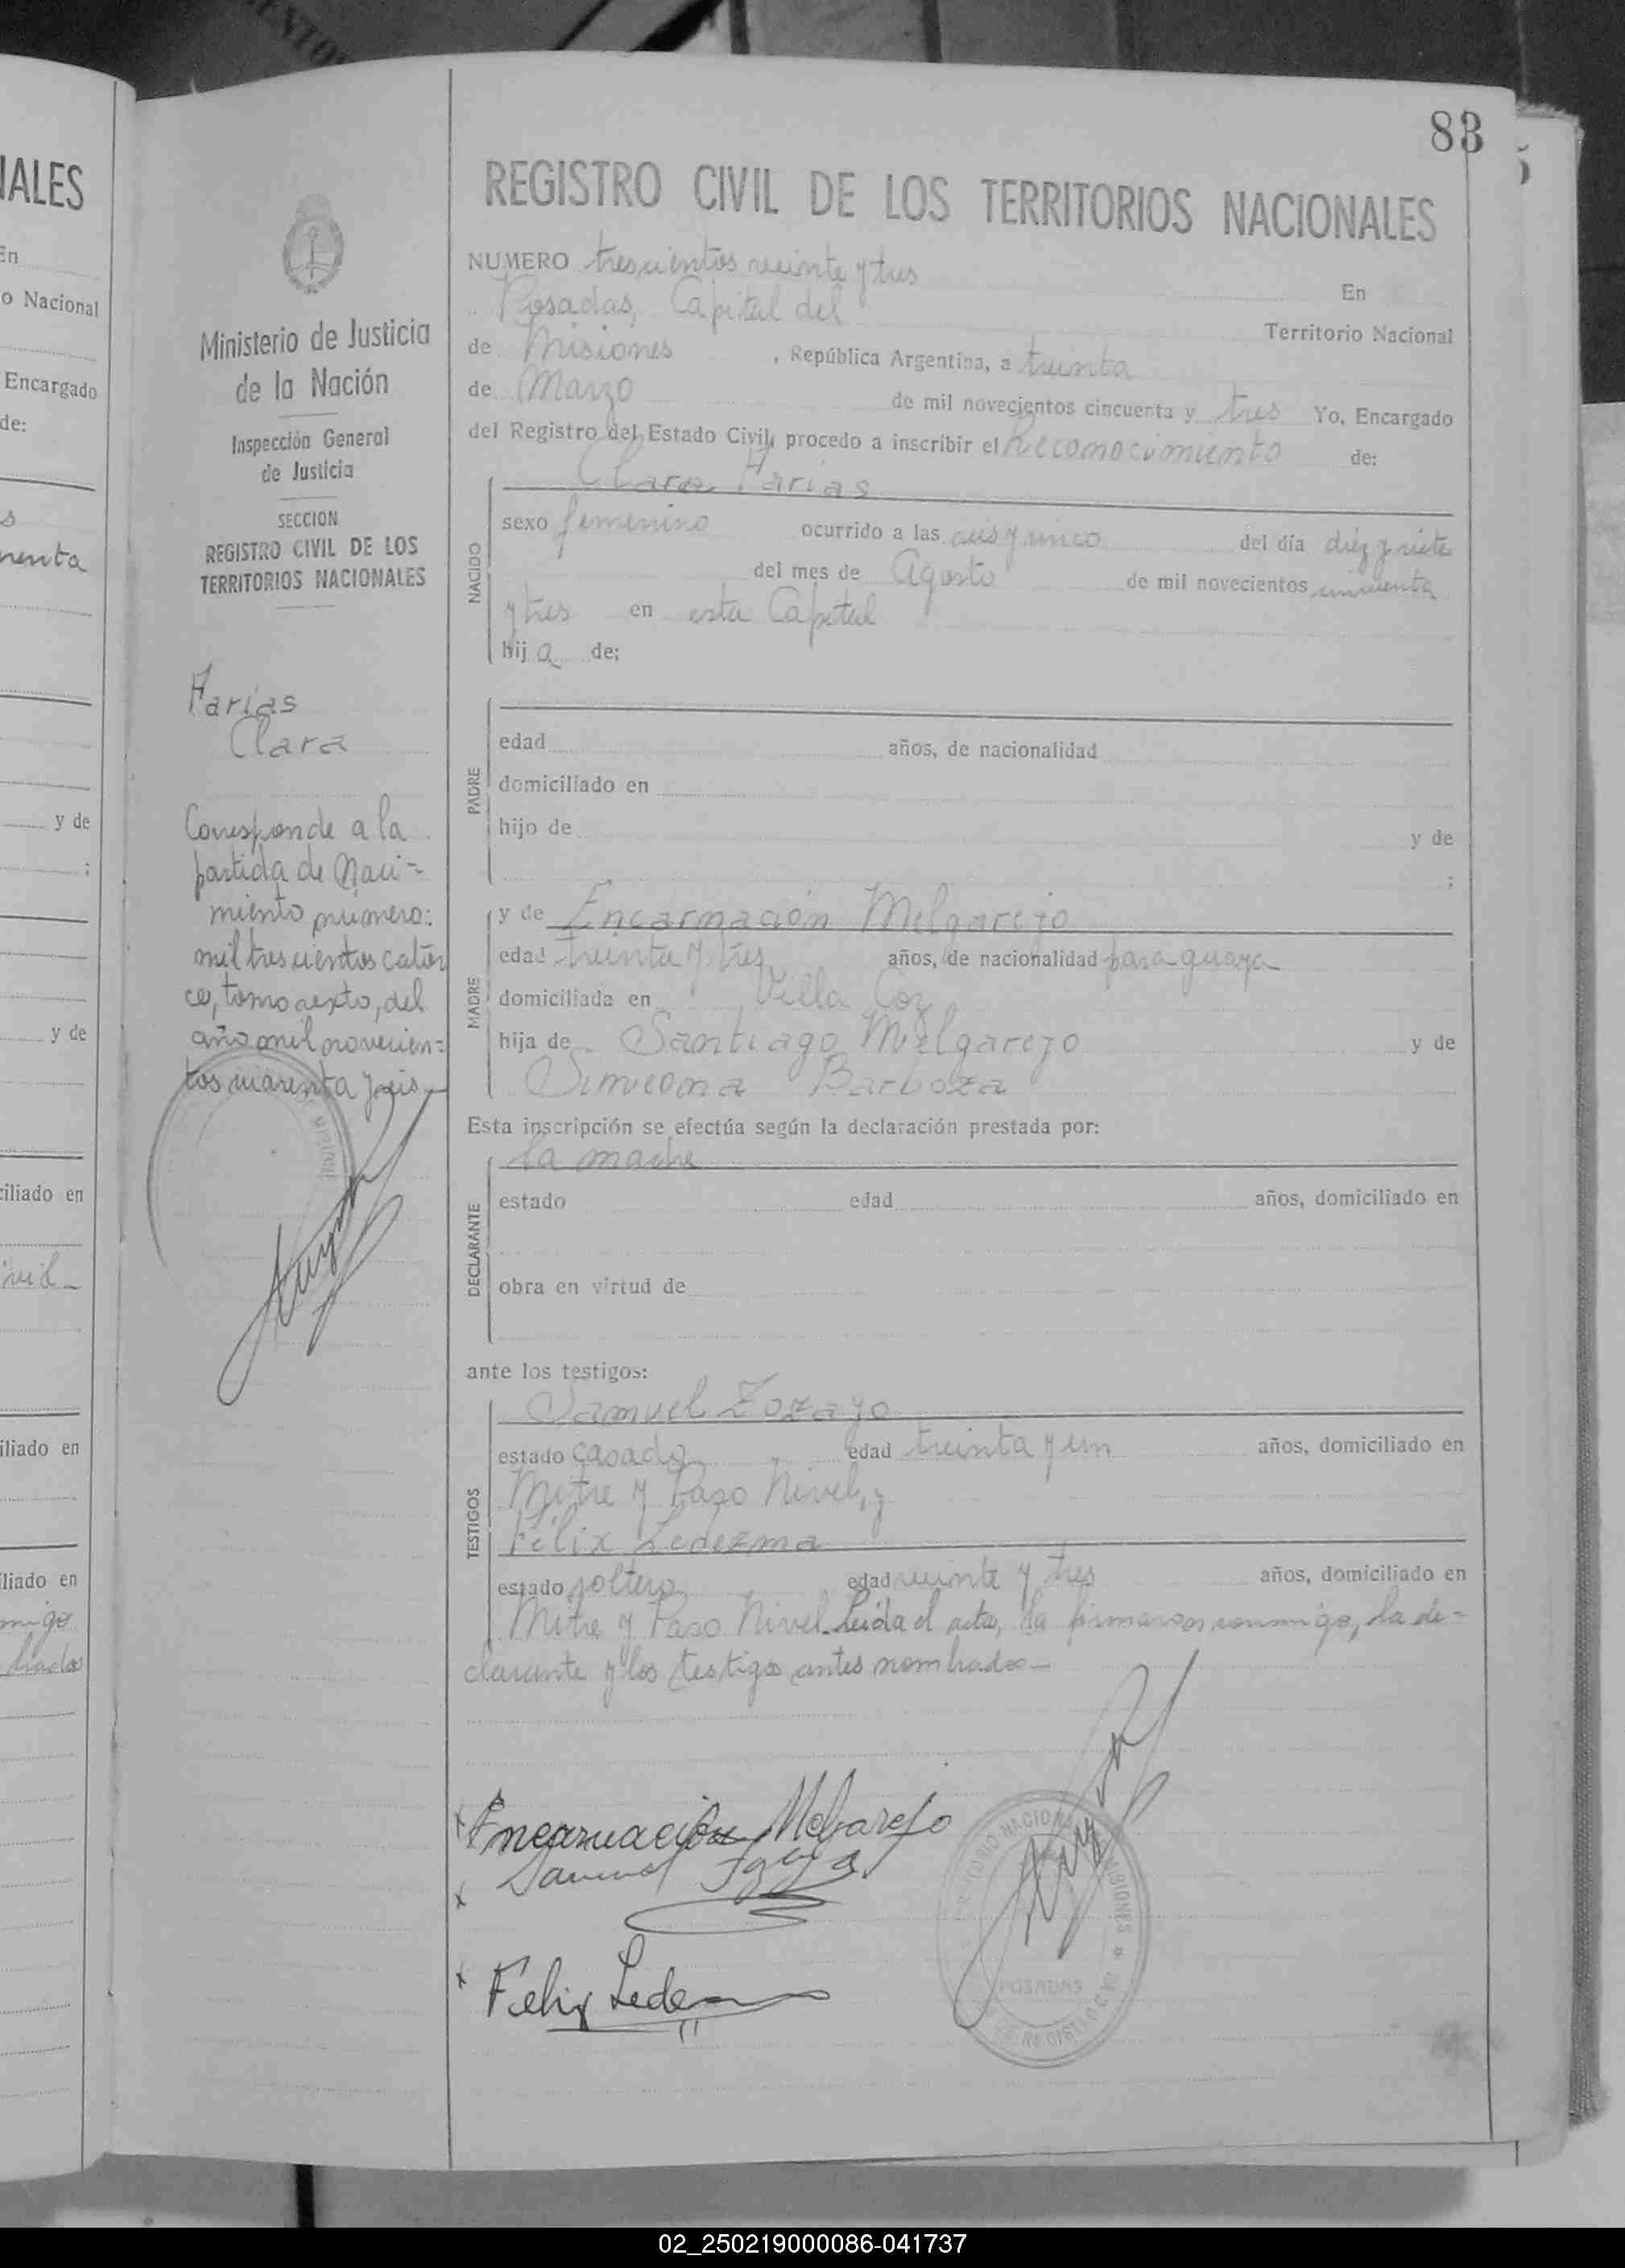 83
REGISTRO CIVIL DE LOS TERRITORIOS NACIONALES
NUMERO trescientos veinte y tres
En
Posadas, Capital del Territorio Nacional
de Misiones, República Argentina, a treinta
de Marzo de mil novecientos cincuenta y tres Yo, Encargado
del Registro del Estado Civil, procedo a inscribir el Reconocimiento de:
Clara Farías
NACIDO
sexo femenino ocurrido a las seis y cinco del día diéz y siete
del mes de Agosto de mil novecientos cincuenta
y tres en esta Capital
hija de:
PADRE
edad años, de nacionalidad
domiciliado en
hijo de y de
;
MADRE
y de Encarnación Melgarejo
edad treinta y tres años, de nacionalidad paraguaya
domiciliada en Villa
hija de Santiago Melgarejo y de
Simeona Barboza
Esta inscripción se efectúa según la declaración prestada por:
DECLARANTE
la madre
estado edad años, domiciliado en
obra en virtud de
ante los testigos:
TESTIGOS
Samuel Zozayo
estado casado edad treinta y un años, domiciliado en
Mitre y Paso Nivel, y
Félix Ledezma
estado soltero edad veinte y tres años, domiciliado en
Mitre y Paso Nivel. Leída el acta, la firmaron conmigo, la de=
clarante y los testigos antes nombrados_
Encarnación Melgarejo
Samuel
Felix
POSADAS
Ministerio de Justicia
de la Nación
Inspección General
de Justicia
SECCION
REGISTRO CIVIL DE LOS
TERRITORIOS NACIONALES
Farías
Clara
Corresponde a la
partida de Naci=
miento número:
mil trescientos cator
ce, tomo sexto, del
año mil novecien=
tos cuarenta y seis
NALES
En
o Nacional
Encargado
de:
y de
;
y de
ciliado en
iliado en
iliado en
02_250219000086-041737